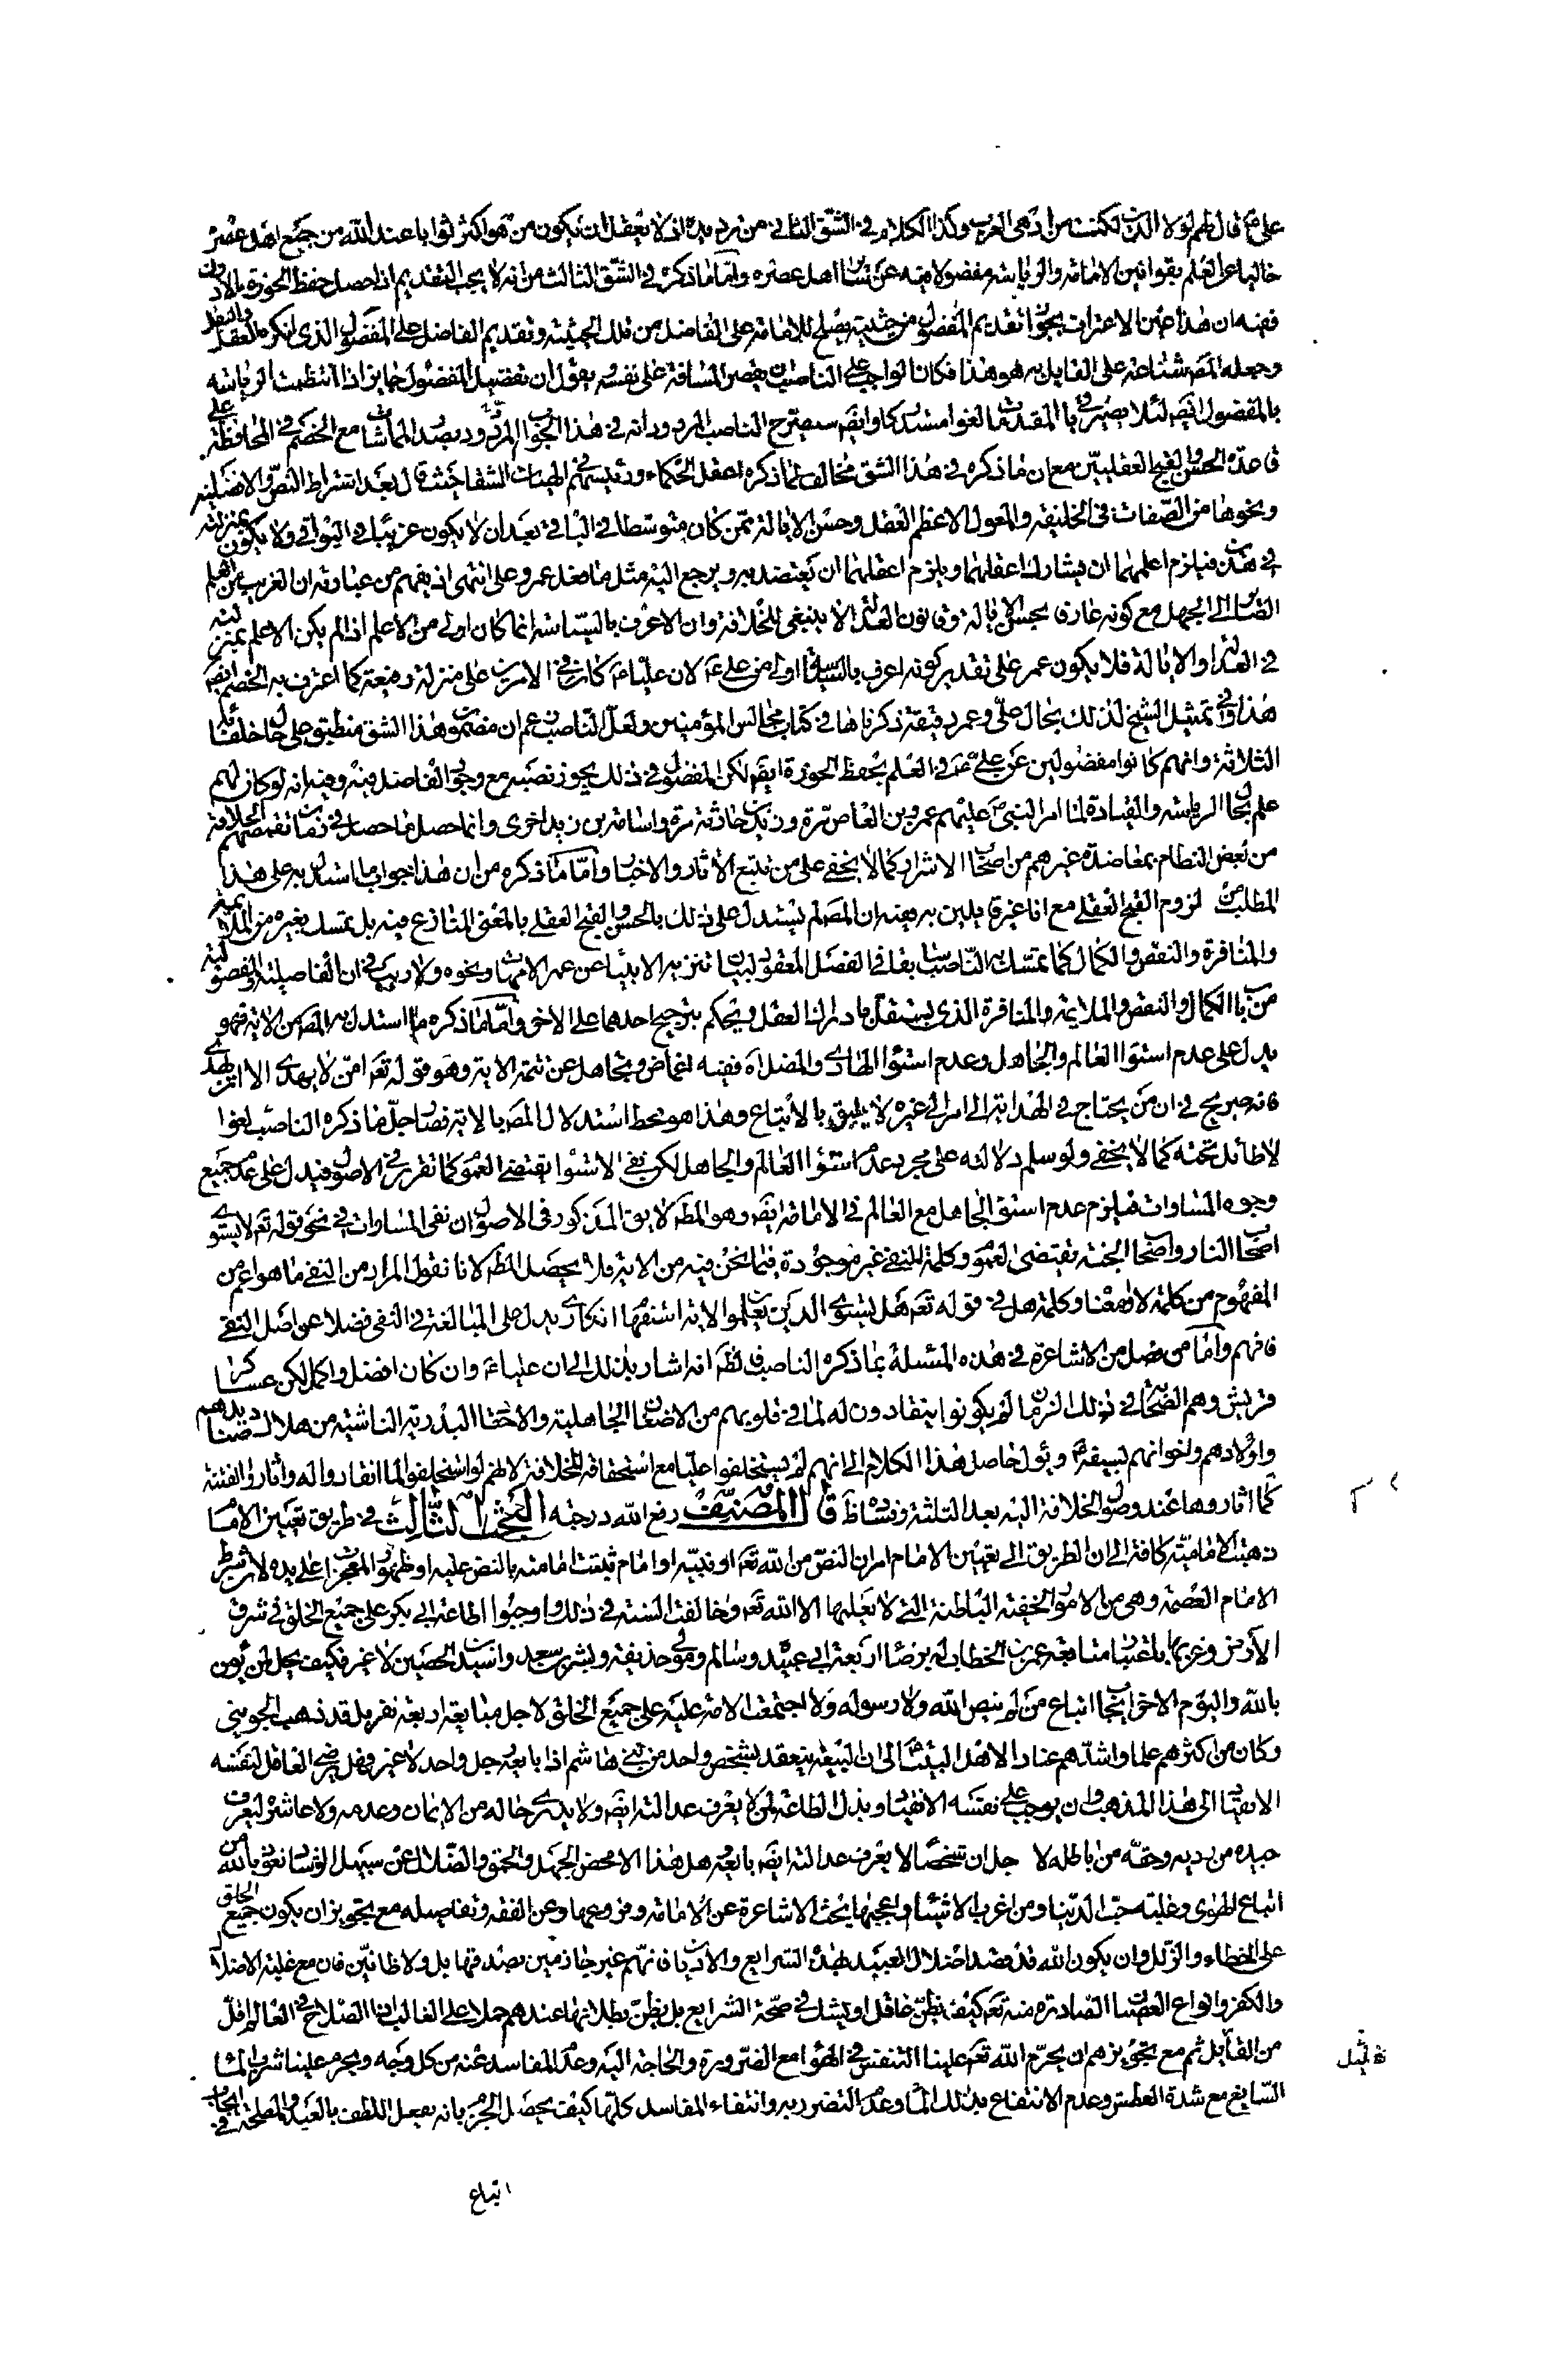 على ع قال لهم لولا الدين لكنت من ادهى العرب وكذا الكلام في الشق الثاني من ترديده اذ لا يعقل ان يكون من هو اكثر ثوابا عند الله من جميع اهل عصره
خاليا عن العلم بقوانين الامامة والرياسة مفضولا فيه عن سائر اهل عصره واما ما ذكره في الشق الثالث من انه لا يجب التقديم اذا حصل حفظ الحوزة بالادون
ففيه ان هذا عين الاعتراف بجواز تقديم المفضول من حيثية يصلح للامامة على الفاضل من تلك الحيثية وتقديم الفاضل على المفضول الذي انكره العقل والنقل
وجعله المصـ شناعة على القايل به هو هذا فكان الواجب على الناصب ان يقصر المسافة على نفسه بقول ان تفضيل المفضول جايز اذا انتظمت الرياسة
بالمفضول ايضـ لئلا يصير في باقي المقدمات لغوا مستدركا وايضـ سيصرح الناصب المردود انه في هذا الجواب المردود بصدد المماشاة مع الخصم في المحافظة على
قاعدة الحسن والقبح العقليين مع ان ما ذكره في هذا الشق مخالف لما ذكره اعقل الحكماء ورئيسهم في الهيات الشفا حيث قال بعد اشتراط النص والافضلية
ونحوها من الصفات في الخليفة والمعول الاعظم العقل وحسن الايالة فمن كان متوسطا في الباقي بعد ان لا يكون غريبا في البواقي ولا يكون بمنزلة
في هذين فيلزم اعلمهما ان يشارك اعقلهما ويلزم اعقلهما ان يعتضد به ويرجع اليه مثل ما فعل عمر وعلى انتهى اذ يفهم من عبارته ان الغريب من العلم
الصائر الى الجهل مع كونه عارفا بحسن الايالة وقانون العدالة لا ينبغي للخلافة وان الاعرف بالسياسة انما كان اولى من الاعلم اذا لم يكن الاعلم بمنزلته
في العدالة او الايالة فلا يكون عمر على تقدير كونه اعرف بالسياسة اولى من على ع لان عليا ع كان في الامرين على منزلة رفيعة كما اعترف به الخصم ايضـ
هذا وفي تمثيل الشيخ لذلك بحال على وعمر دقيقة ذكرناها في كتاب مجالس المؤمنين ولعل الناصب زعم ان مضمون هذا الشق منطبق على حال خلفائه
الثلاثة وانهم كانوا مفضولين عن على ع في العلم بحفظ الحوزة ايضـ لكن المفضول في ذلك يجوز نصبه مع وجود الفاضل فيه وفيه انه لو كان لهم
علم بحال الرياسة والقيادة لما امر النبي ص عليهم عمرو بن العاص مرة وزيد بن حارثة مرة واسامة بن زيد اخرى وانما حصل ما حصل في زمان تقمصهم الخلافة
من بعض النظام بمعاضدة غيرهم من اصحاب الاشراك كما لا يخفى على من تتبع الاثار والاخبار واما ما ذكره من ان هذا جواب ما استدل به على هذا
المطلب من لزوم القبح العقلى مع انا غير قايلين به ففيه ان المصـ لم يستدل على ذلك بالحسن والقبح العقلى بالمعنى المتنازع فيه بل تمسك بغيره من الملايمة
والمنافرة والنقص والكمال كما تمسك به الناصب سابقا في الفصل المعقود لبيان تنزيه الانبيا عن عهر الامهات ونحوه ولا ريب في ان الفاضلية والمفضولية
من باب الكمال والنقص والملايمة والمنافرة الذي يستقل بادراك العقل ويحكم بترجيح احدهما على الاخر واما ما ذكره ما استدل به المصـ من الاية فهو
يدل على عدم استواء العالم والجاهل وعدم استواء الهادي والمضل اه ففيه اغماض وتجاهل عن تتمة الاية وهو قوله تعـ امن لا يهدي الا ان يهدى
فانه صريح في ان من يحتاج في الهداية الى امر الى غيره لا يليق بالاتباع وهذا هو محط استدلال المصـ بالاية فصار جل ما ذكره الناصب لغوا
لا طائل تحته كما لا يخفى ولو سلم دلالته على مجرد عدم استواء العالم والجاهل لكن نفي الاستواء يقتضي العموم كما تقرر في الاصول فيدل على عدم جميع
وجوه المساوات فيلزم عدم استواء الجاهل مع العالم في الامامة ايضـ وهو المطـ لا يق المذكور في الاصول ان نفي المساوات في نحو قوله تعـ لا يستوي
اصحاب النار واصحاب الجنة يقتضي العموم وكلمة النفي غير موجودة فيما نحن فيه من الاية فلا يحصل المطـ لانا نقول المراد من النفي ما هو اعم من
المفهوم من كلمة لا ومعناه وكلمة هل في قوله تعـ هل يستوي الذين يعلمون الاية استفهام انكاري يدل على المبالغة في النفي فضلا عن اصل النفي
فافهم واما من فضل من الاشاعرة في هذه المسئلة بما ذكره الناصب فالظـ انه اشار بذلك الى ان عليا ع وان كان افضل واكمل لكن عساكر
قريش وهم الصحابة في ذلك الزمان لم يكونوا ينقادون له لما في قلوبهم من الاضغان الجاهلية والاحقاد البدرية الناشئة من هلاك صناديدهم
واولادهم واخوانهم بسيفه ع ويؤل حاصل هذا الكلام الى انهم لم يستخلفوا عليا مع استحقاقه للخلافة لانهم لو استخلفوا لما انقادوا له واثاروا الفتنة
كما اثاروها عند وصول الخلافة اليه بعد الثلثة وفساده ظاهر قال المصنف رفع الله درجته المبحث الثالث في طريق تعيين الامام
ذهبت الامامية كافة الى ان الطريق الى تعيين الامام امران النص من الله تعـ او نبيه او امام ثبتت امامته بالنص عليه او ظهور المعجزات على يده لان شرط
الامام العصمة وهي من الامور الخفية الباطنة التي لا يعلمها الا الله تعـ وخالفت السنة في ذلك واوجبوا اطاعة ابي بكر على جميع الخلق في شرق
الارض وغربها باعتبار متابعة عمر بن الخطاب له برضا اربعة ابي عبيدة وسالم مولى حذيفة وبشر بن سعد واسيد بن الحصين لا غير فكيف يحل لمن يؤمن
بالله واليوم الاخر ايجاب اتباع من لم ينص الله ولا رسوله ولا اجتمعت الامة عليه على جميع الخلق لاجل مبايعة اربعة نفر بل قد ذهب الجويني
وكان من اكثرهم علما واشدهم عنادا لاهل البيت الى ان البيعة ينعقد بشخص واحد من بني هاشم اذا بايعه رجل واحد لا غير وهل يرضى العاقل لنفسه
الانقياد الى هذا المذهب وان يوجب على نفسه الانقياد وبذل الطاعة لمن لا يعرف عدالته ايضـ ولا يدري حاله من الايمان وعدمه ولا عاشره ليعرف
جيده من رديه وحقه من باطله لاجل ان شخصا لا يعرف عدالته ايضـ بايعه وهل هذا الا محض الجهل والحمق والضلال عن سبيل الرشاد نعوذ بالله من
اتباع الهوى وغلبة حب الدنيا ومن اغرب الاشياء واعجبها بحث الاشاعرة عن الامامة وفروعها وعن الفقه وتفاصيله مع تجويز ان يكون جميع الخلق
على الخطاء والزلل وان يكون الله قد قصد اضلال العبيد بهذه الشرايع والاديان فانهم غير جازمين بصدقها بل ولا ظانين فان مع غلبة الاضلال
والكفر وانواع العصيان الصادرة منه تعـ كيف يظن عاقل او يشك في صحة الشرايع بل يظن بطلانها عندهم حملا على الغالب اذ الصلاح في العالم اقل
من القليل ثم مع تجويزهم ان يحرم الله تعـ علينا التنفس في الهواء مع الضرورة والحاجة اليه وعدم المفاسد عنه من كل وجه ويحرم علينا شرب الماء
السايغ مع شدة العطش وعدم الانتفاع بذلك الماء وعدم التضرر به وانتفاء المفاسد كلها كيف يحصل الجزم بانه يفعل اللطف بالعبيد والمصلحة في ايجاب
اتباع